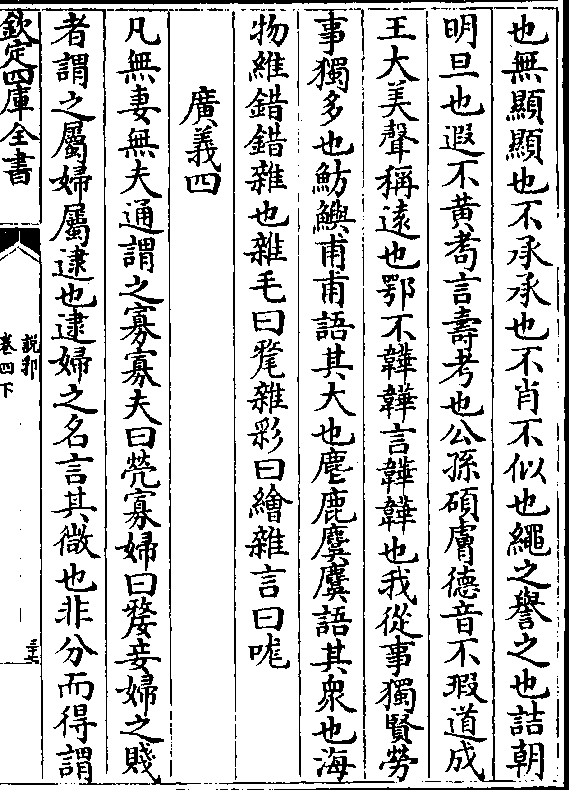 也無顯顯也不承承也不肖不似也繩之譽之也詰朝
明旦也遐不黃耇言壽考也公孫碩膚德音不瑕道成
王大美聲稱遠也鄂不韡韡言韡韡也我從事獨賢勞
事獨多也魴鱮甫甫語其大也麀鹿麌麌語其衆也海
物維錯錯雜也雜毛曰氂雜彩曰繪雜言曰哤
廣義四
凡無妻無夫通謂之寡寡夫曰煢寡婦曰嫠妾婦之賤
者謂之屬婦屬逮也逮婦之名言其微也非分而得謂
欽定四庫全書
說郛
卷四下